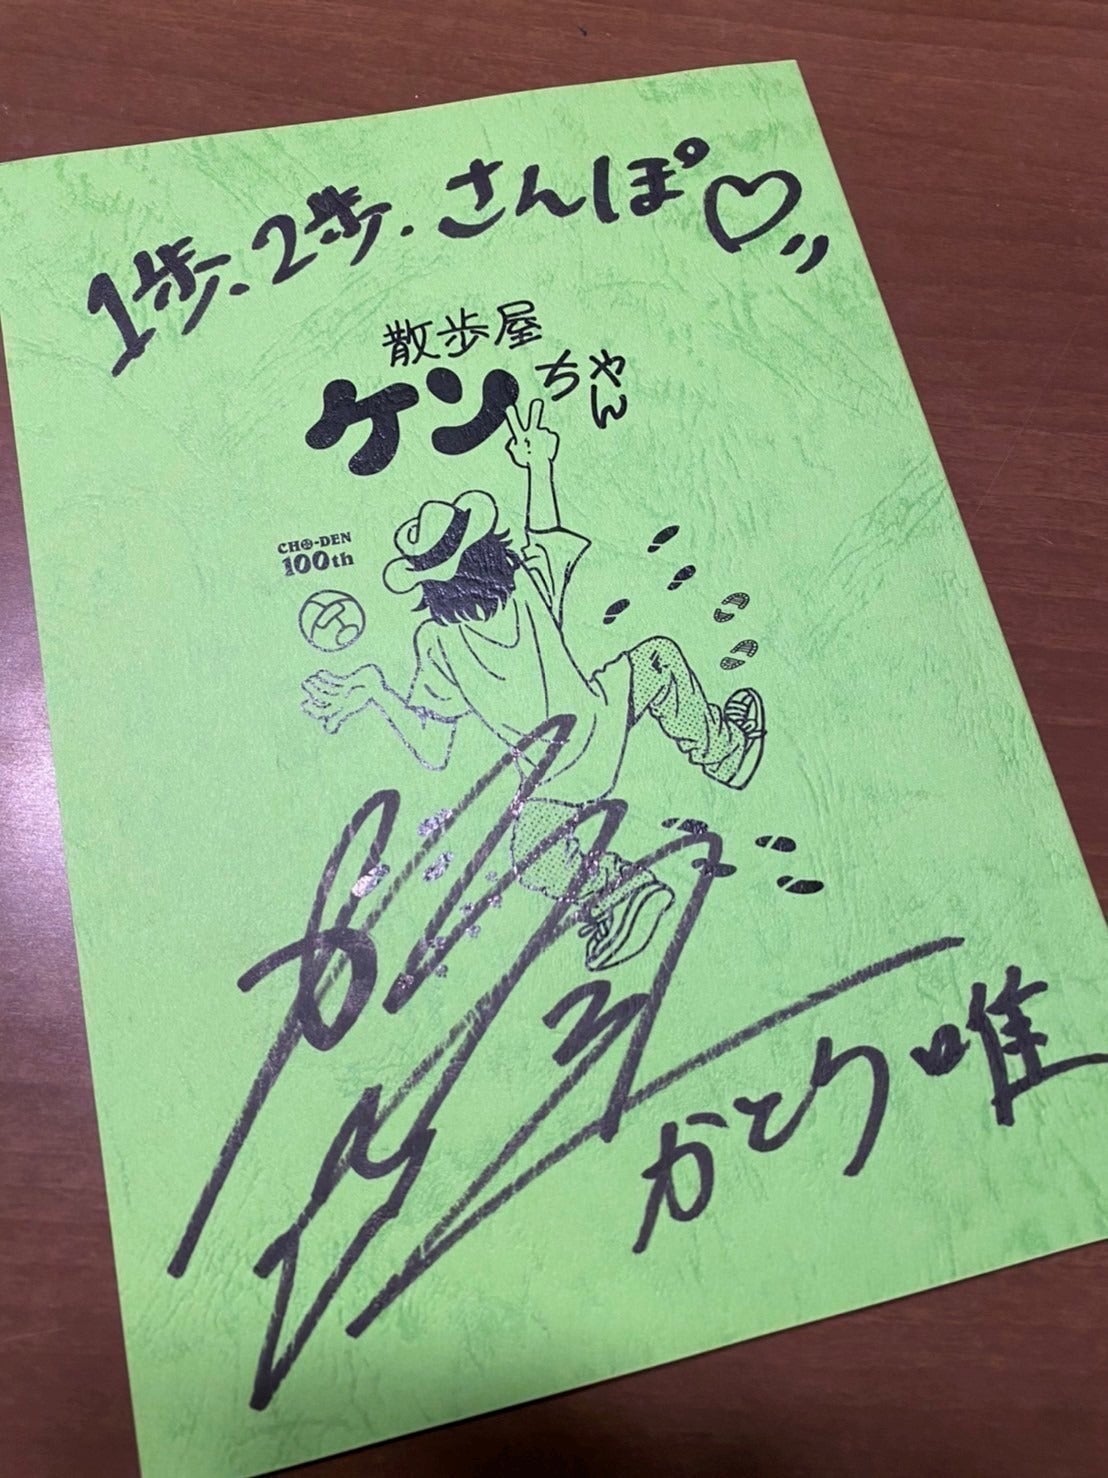 1歩、2歩、さんぽ♡
散歩屋
ケンちゃん
CHO-DEN
100th
かとり唯